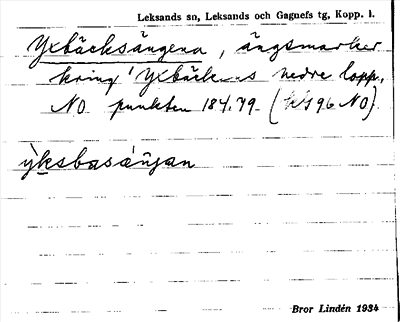 Leksands sn, Leksands och Gagnefs tg, Kopp. l.
Yxbäcksängena, ängsmarker
kring Yxbäckens nedre lopp,
NO punkten 184.79. (kS 96 NO).
ỳksbasáŋ̃an
Bror Lindén 1934